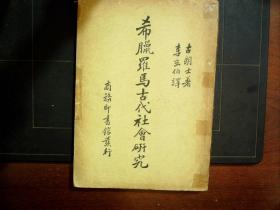 古朗士著
李宗侗譯
希臘羅馬古代社會研究
商務印書館發行